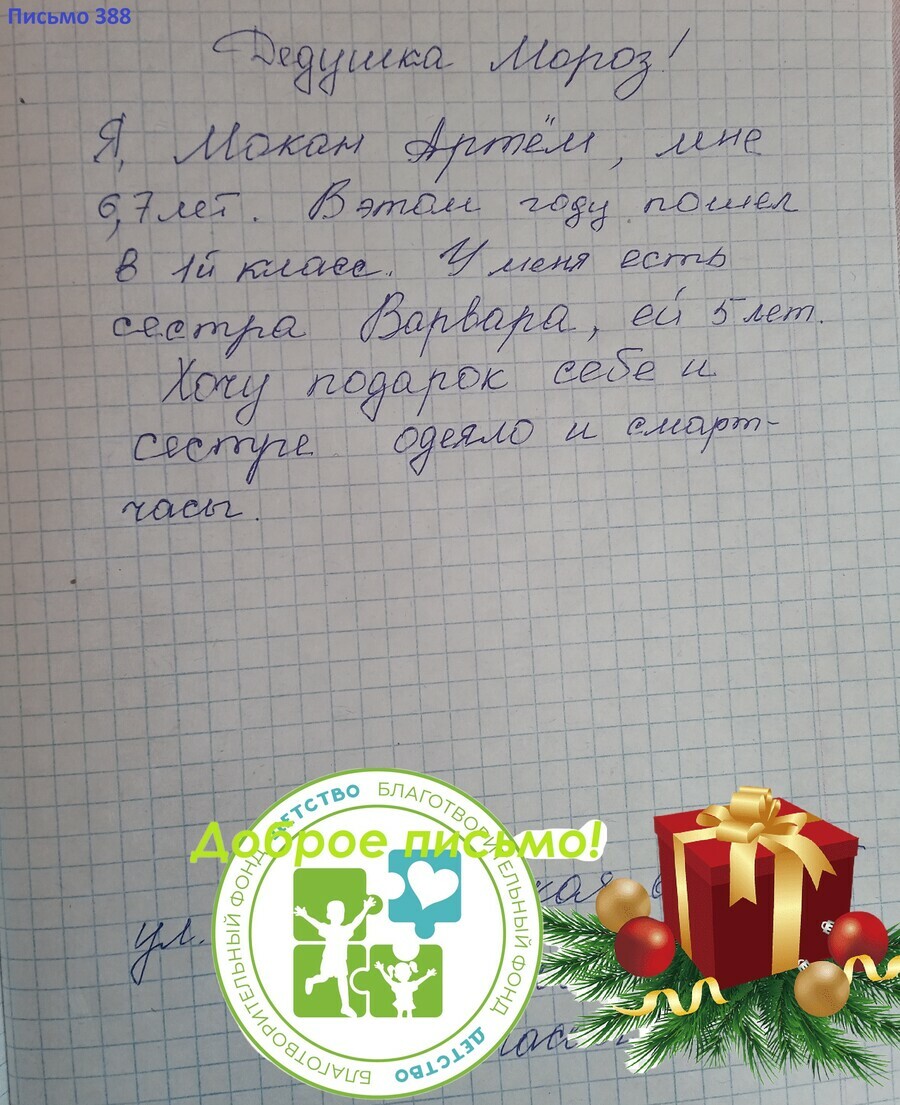 Письмо 388
Дедушка Мороз!
Я, Мокан Артём, мне
6,7 лет. В этом году пошел
в 1й класс. У меня есть
сестра Варвара, ей 5 лет.
Хочу подарок себе и
сестре одеяло и смарт-
часы.
Доброе письмо!
БЛАГОТВОРИТЕЛЬНЫЙ ФОНД ДЕТСТВО
БЛАГОТВОРИТЕЛЬНЫЙ ФОНД ДЕТСТВО
ул.